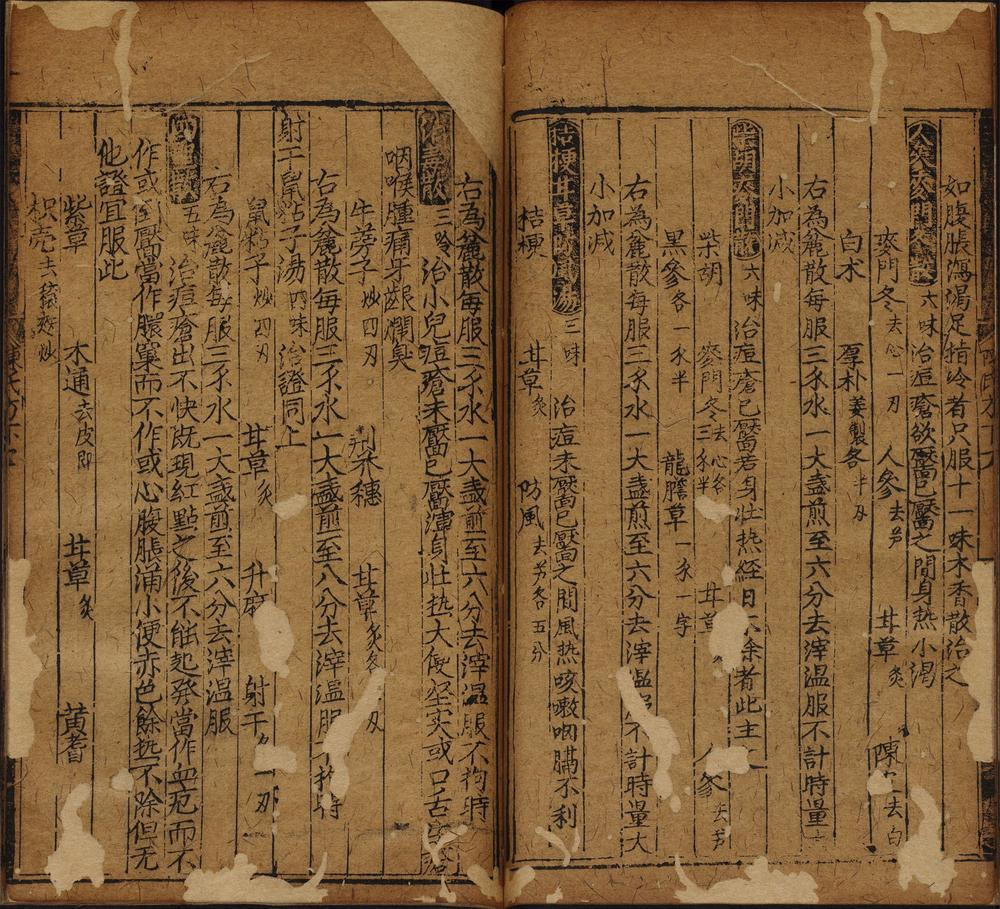 如腹脹瀉渴足指冷者只服十一味木香散治之
人參麥門冬散六味治痘瘡欲靨已靨之間身热小渴
麥門冬去心一刃 人參去芦 甘草炙 陳 去白
白术 厚朴姜製各半刃
右為麄散每服三𠆤水一大盞煎至六分去滓温服不計時量大
小加減
柴胡麥門散六味治痘瘡已靨若身壮热経日不除者此主
柴胡 麥門冬去心各三𠆤半 甘草 人參去芦
黑參各一𠆤半 龍膽草一𠆤一字
右為麄散每服三𠆤水一大盞煎至六分去滓温服不計時量大
小加減
桔梗甘草防風湯三味治痘未靨已靨之間風热咳嗽咽膈不利
桔梗 甘草炙 防風去芦各五分
右為麄散每服三𠆤水一大盏煎至六分去滓温服不拘時
治小兒痘瘡未靨已靨渾身壮热大便坚实或口舌
咽喉腫痛牙齦爛臭
牛蒡子炒四刃 荆芥穗 甘草炙各 刃
右為麄散每服三𠆤水一大盞煎至八分去滓温服不拘時
射干鼠粘子湯四味治證同上
鼠粘子炒四刃 甘草炙 升麻 射干各一刃
右為麄散每服三𠆤水一大盞煎至六分去滓温服
五味治痘瘡出不快既現紅點之後不能起発當作血疱而不
作或 靨當作膿窠而不作或心腹脹滿小便赤色餘热不除但无
他證宜服此
紫草 木通去皮節 甘草炙 黄耆
枳壳去穰麩炒